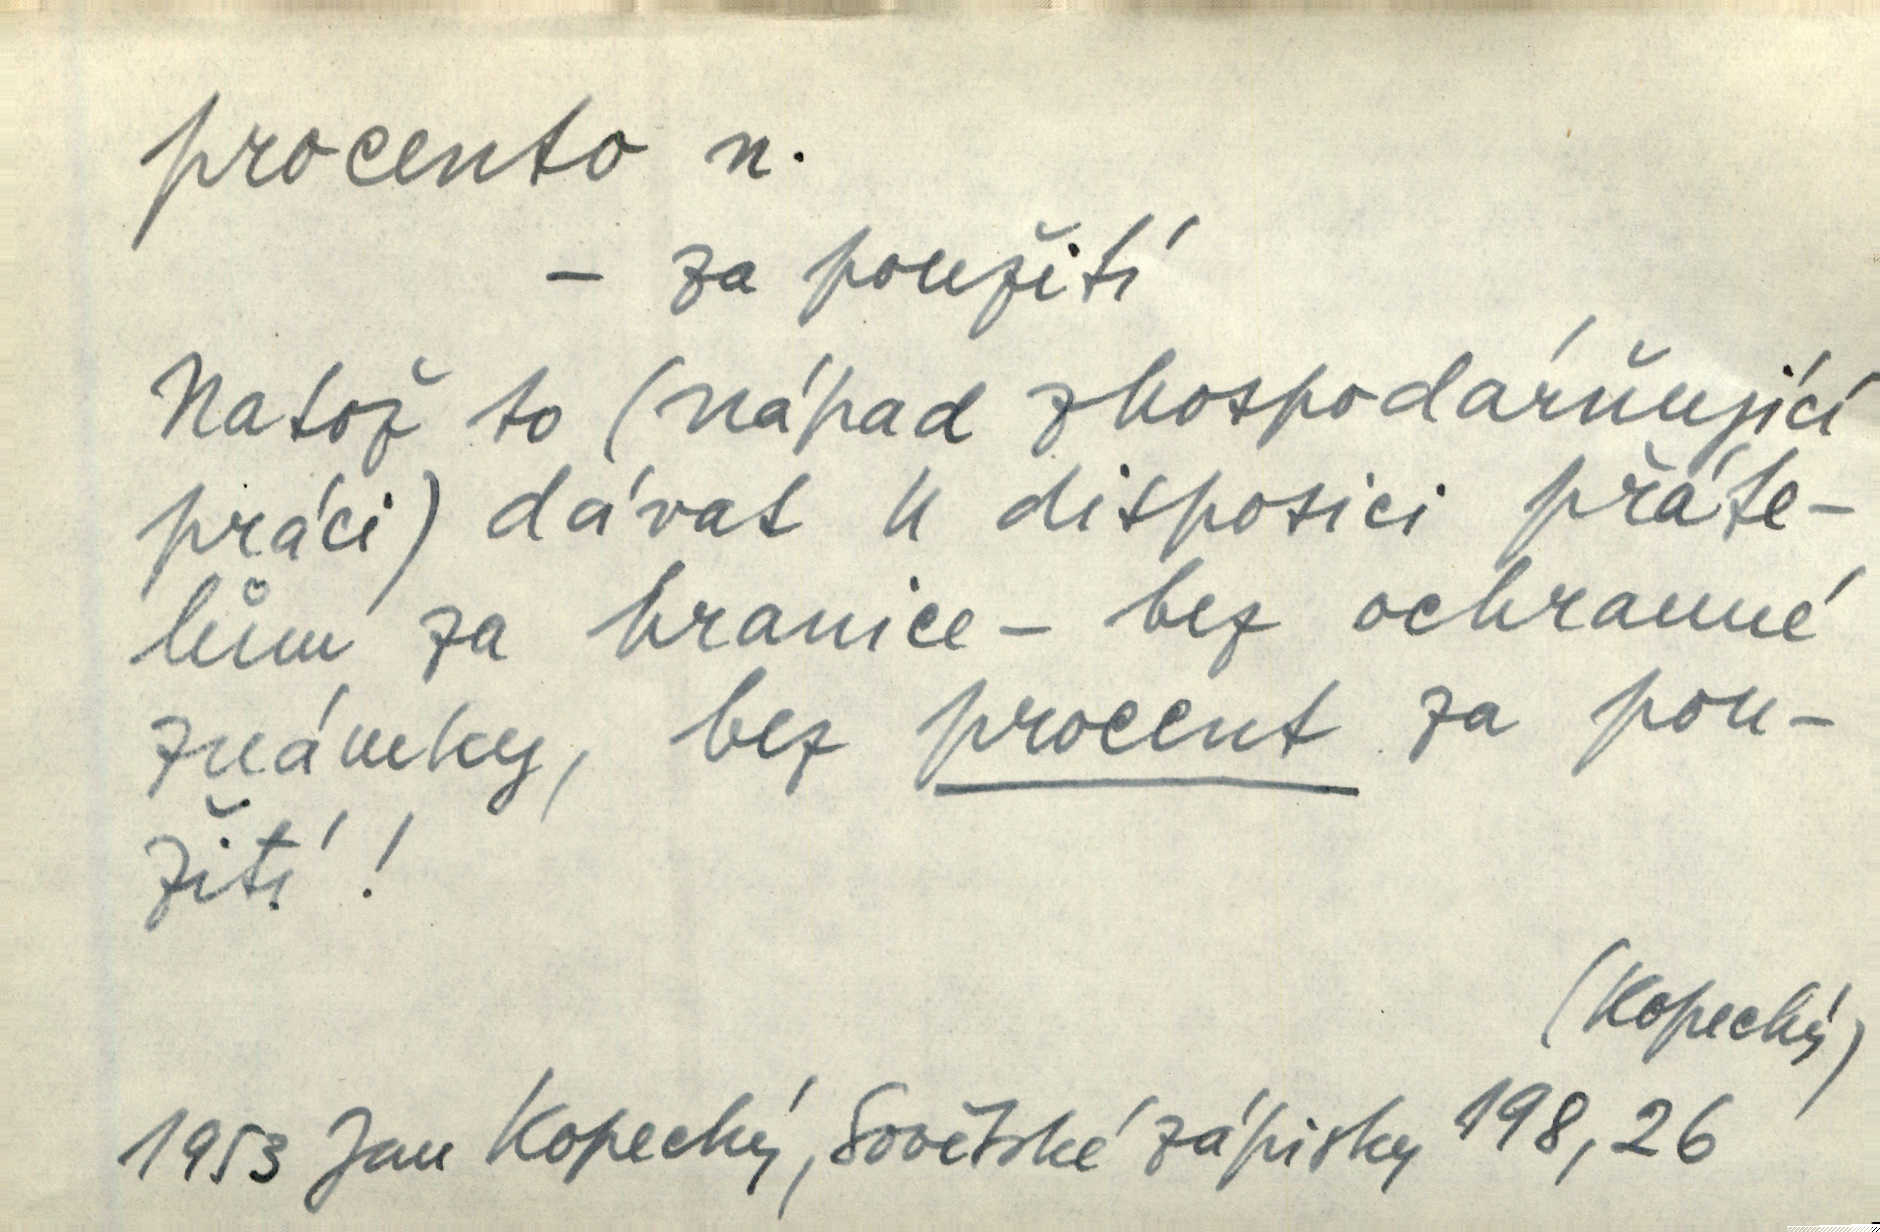 procento n.
– za použití
Natož to (nápad zhospodárňující
práci) dávat k disposici přáte–
lům za hranice – bez ochranné
známky, bez procent za pou–
žití!
(Kopecký)
1953 Jan Kopecký, Sovětské zápisky 198, 26